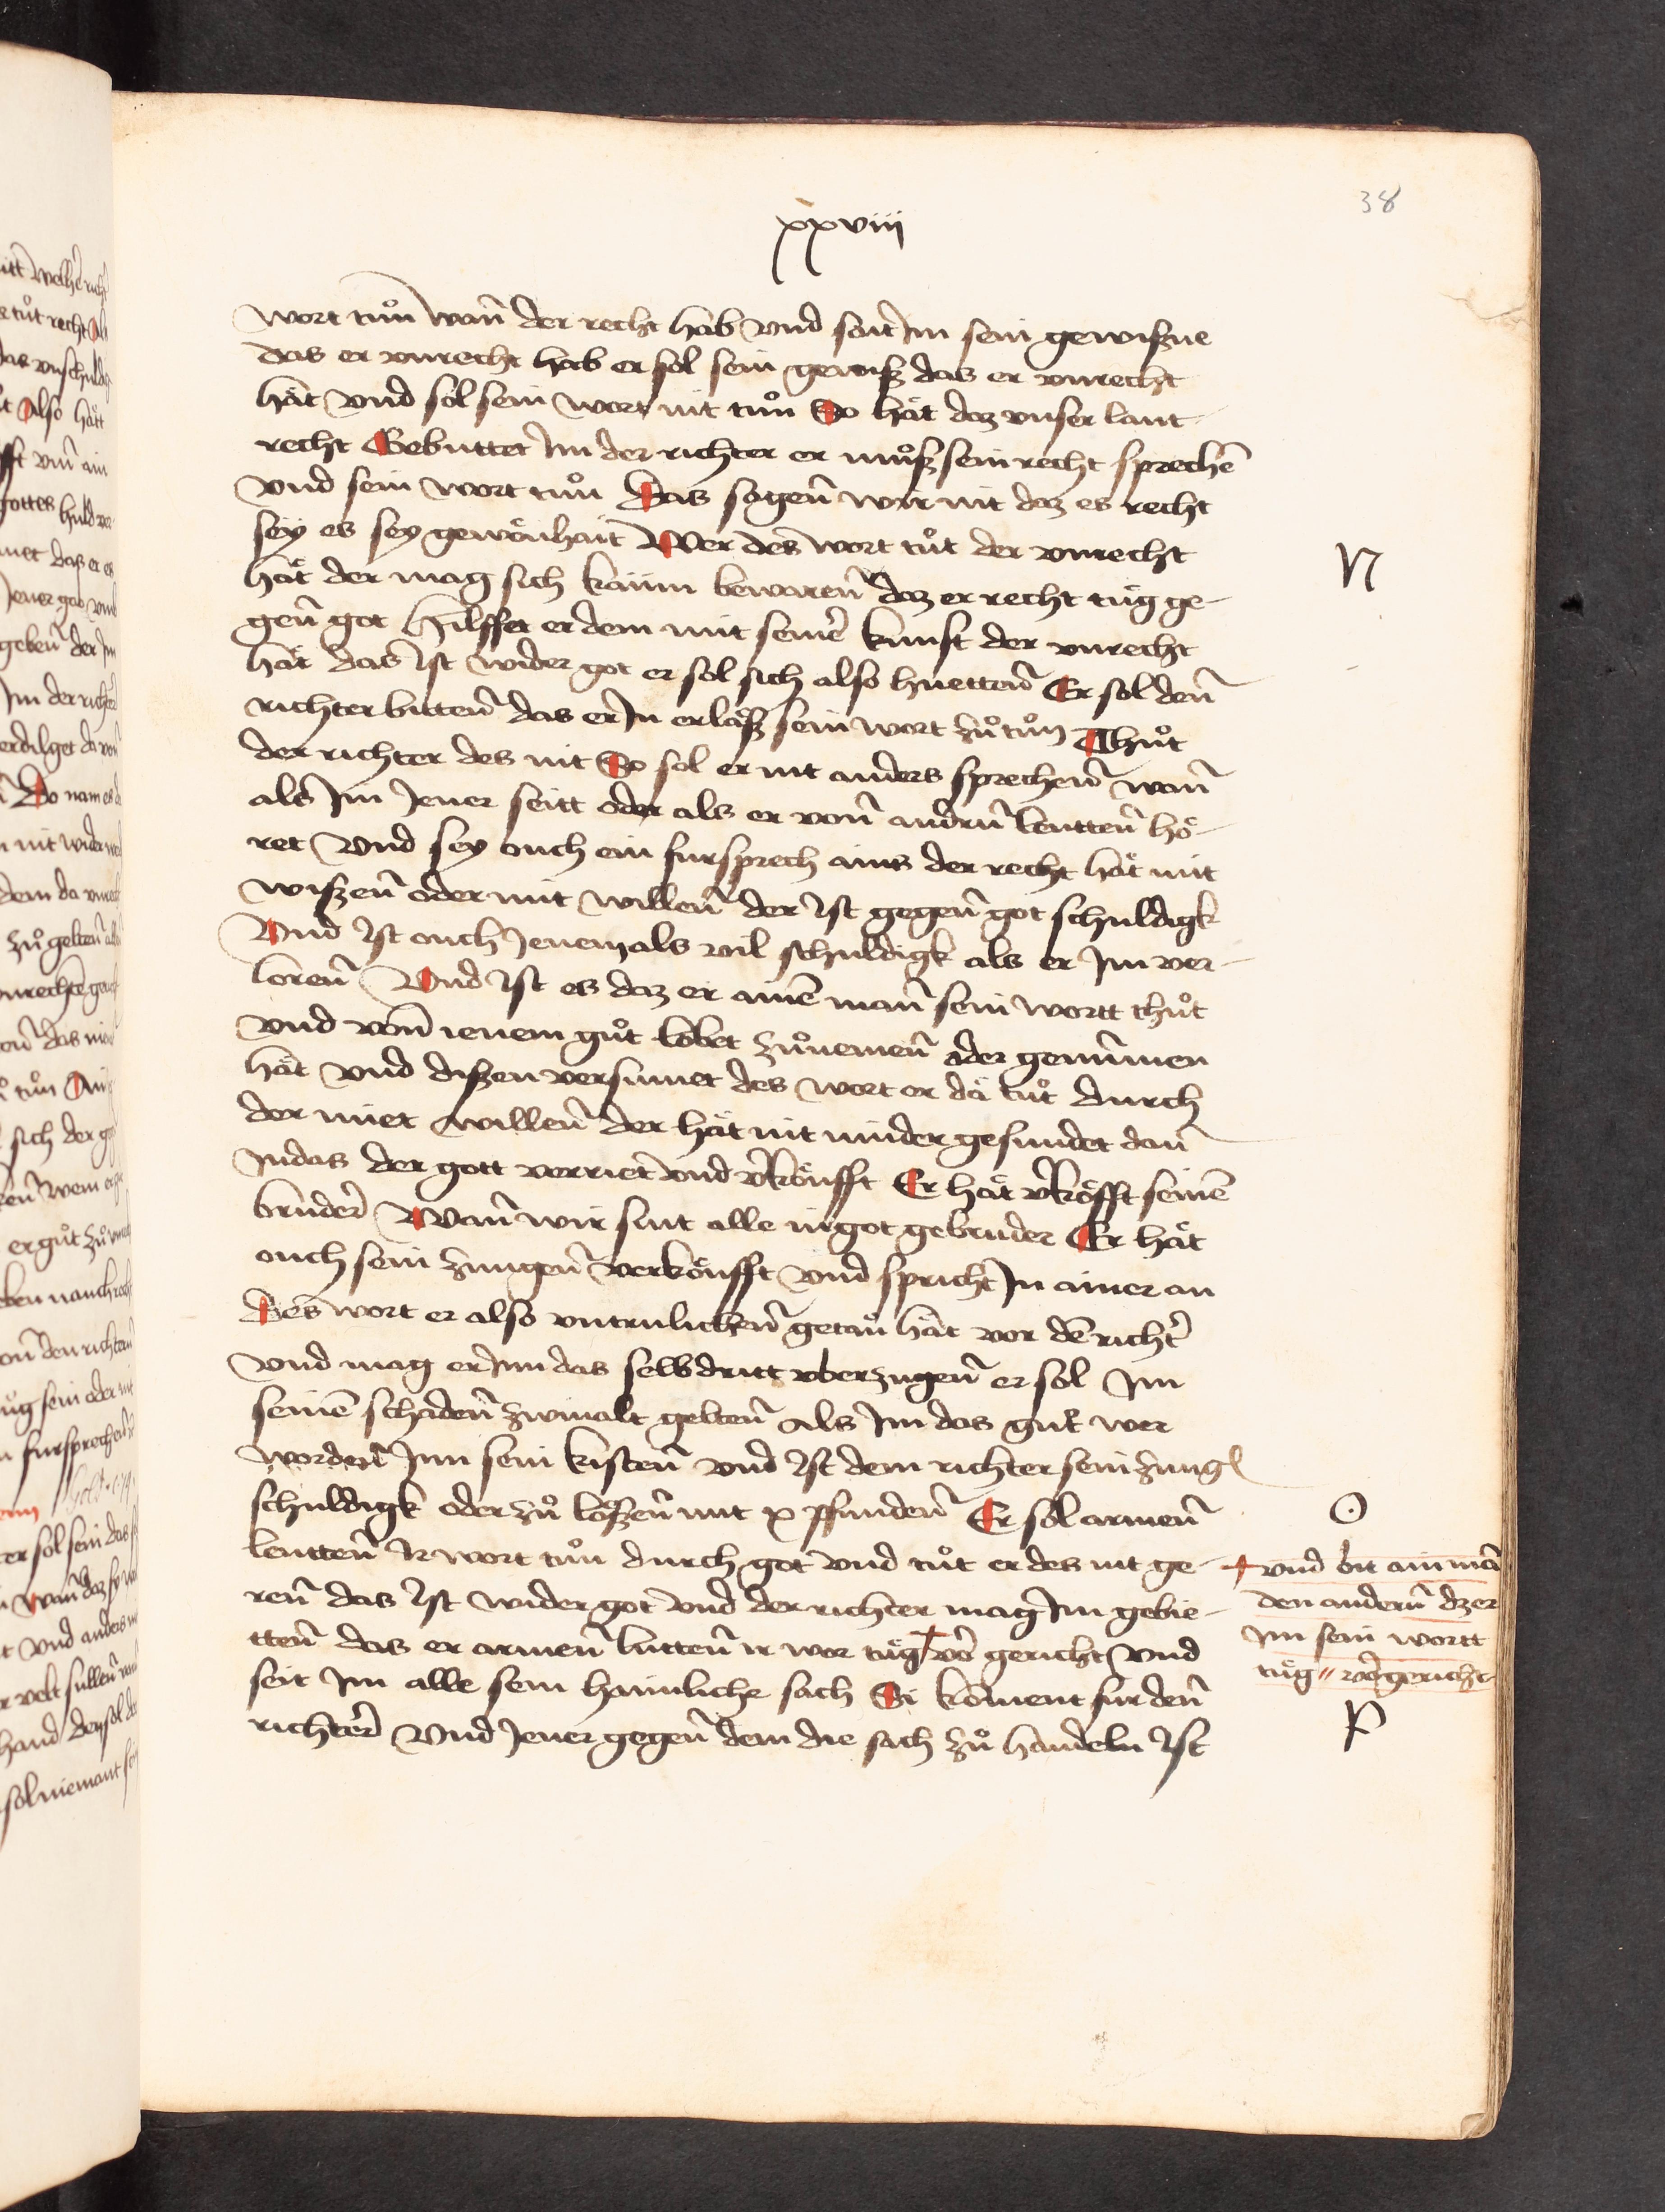 38
xxviii
wort tuͦn wañ der recht hab vnd seit Im sein gewiszne
das er vnrecht hab er sol sein gewisz das er vnrecht
hät vnd sol sein wort nit tuͦn So hät daz vnser lant
recht Gebuttet Im der richter er muͦsz sein recht sprechē
vnd sein wort tuͦn Das sagen̄ wir nit daz es recht
sey es sey gewönhait Wer des wort tuͦt der vnrecht
hät der mag sich kaum bewaren̄ daz er recht tüg ge-
gen̄ got Hilffet er dem mit seinē kunst der vnrecht
hät das Ist wider got er sol sich also huetten̄ Er sol den̄
richter bitten̄ das er In erläsz sein wort zuͦ tuͦn Thuͦt
der richter des nit So sol er nit anders sprechen̄ wan̄
als Im Jener seitt oder als er von̄ andrn̄ leutten̄ hö-
ret vnd sey ouch ein fursprech ains der recht hät mit
wiszen̄ oder mit willen̄ der Ist gegen̄ got schuldigk
Vnd Ist ouch Jenem als vil schuldigk als er Im ver-
loren̄ Vnd Ist es daz er ainē man̄ sein wortt thuͦt
vnd von̄ ienem guͦt lobet zuͦ nemen̄ oder genummen
hät vnd diszen versumet des wort er dä tuͦt durch
der miet willen̄ der hät nit minder gesundet dan̄
Judas der gott verriet vnd v̄köufft Er hät v̄köfft seinē
bruder̄ Wan̄ wir sint alle in got gebruder Er hät
ouch sein zungen̄ verköufft vnd spricht In ainer an
Des wort er also vntrulichen̄ getan̄ hät vor dē richt̄
vnd mag er Im das selb dritt vberzugen̄ er sol Im
seinē schaden̄ zwinalt gelten̄ als Im das guͦt wer
worden̄ Inn sein kisten̄ vnd Ist dem richter sein zung
schuldigk oder zuͦ löszen̄ mit x pfunden̄ Er sol armen̄
leutten̄ Ir wort tuͦn durch got vnd tuͦt er des nit ge-
ren̄ das Ist wider got vnd der richter mag Im gebie-
tten̄ das er armen̄ lutten̄ ir wor tüg † vō gericht vnd
seit Im alle sein haimliche sach Si koment fur den̄
richter̄ vnd Jener gegen̄ dem die sach zuͦ handeln Ist
N
O
† vnd bit ain mā
den andern̄ dz er
Im sein wortt
tüg // vō gericht
P